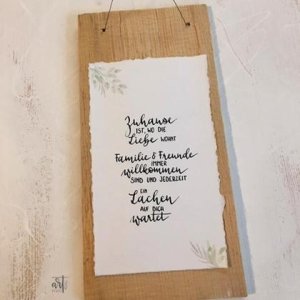 Zuhause
IST, WO DIE
Liebe WOHNT
Familie & Freunde
IMMER
willkommen
SIND UND JEDERZEIT
EIN
Lachen
AUF DICH
wartet
art